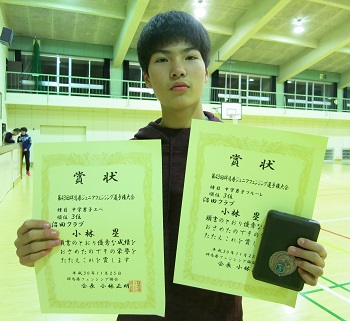 賞状
第43回群馬県ジュニアフェンシング選手権大会
種目 中学男子エペ
順位 3位
沼田クラブ
小林 塁
頭書のとおり優秀な成績を
おさめたのでその栄誉を
たたえこれを賞します
平成30年11月25日
群馬県フェンシング協会
会長 小林正明
賞状
第43回群馬県ジュニアフェンシング選手権大会
種目 中学男子フルーレ
順位 3位
沼田クラブ
小林 塁
頭書のとおり優秀な成
おさめたのでその栄
たたえこれを賞し
平成30年11月25
群馬県フェンシング協
会長 小林